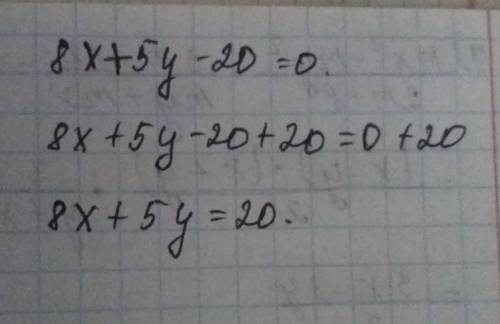 8x+5y-20=0.
8x+5y-20+20=0+20
8x+5y=20.